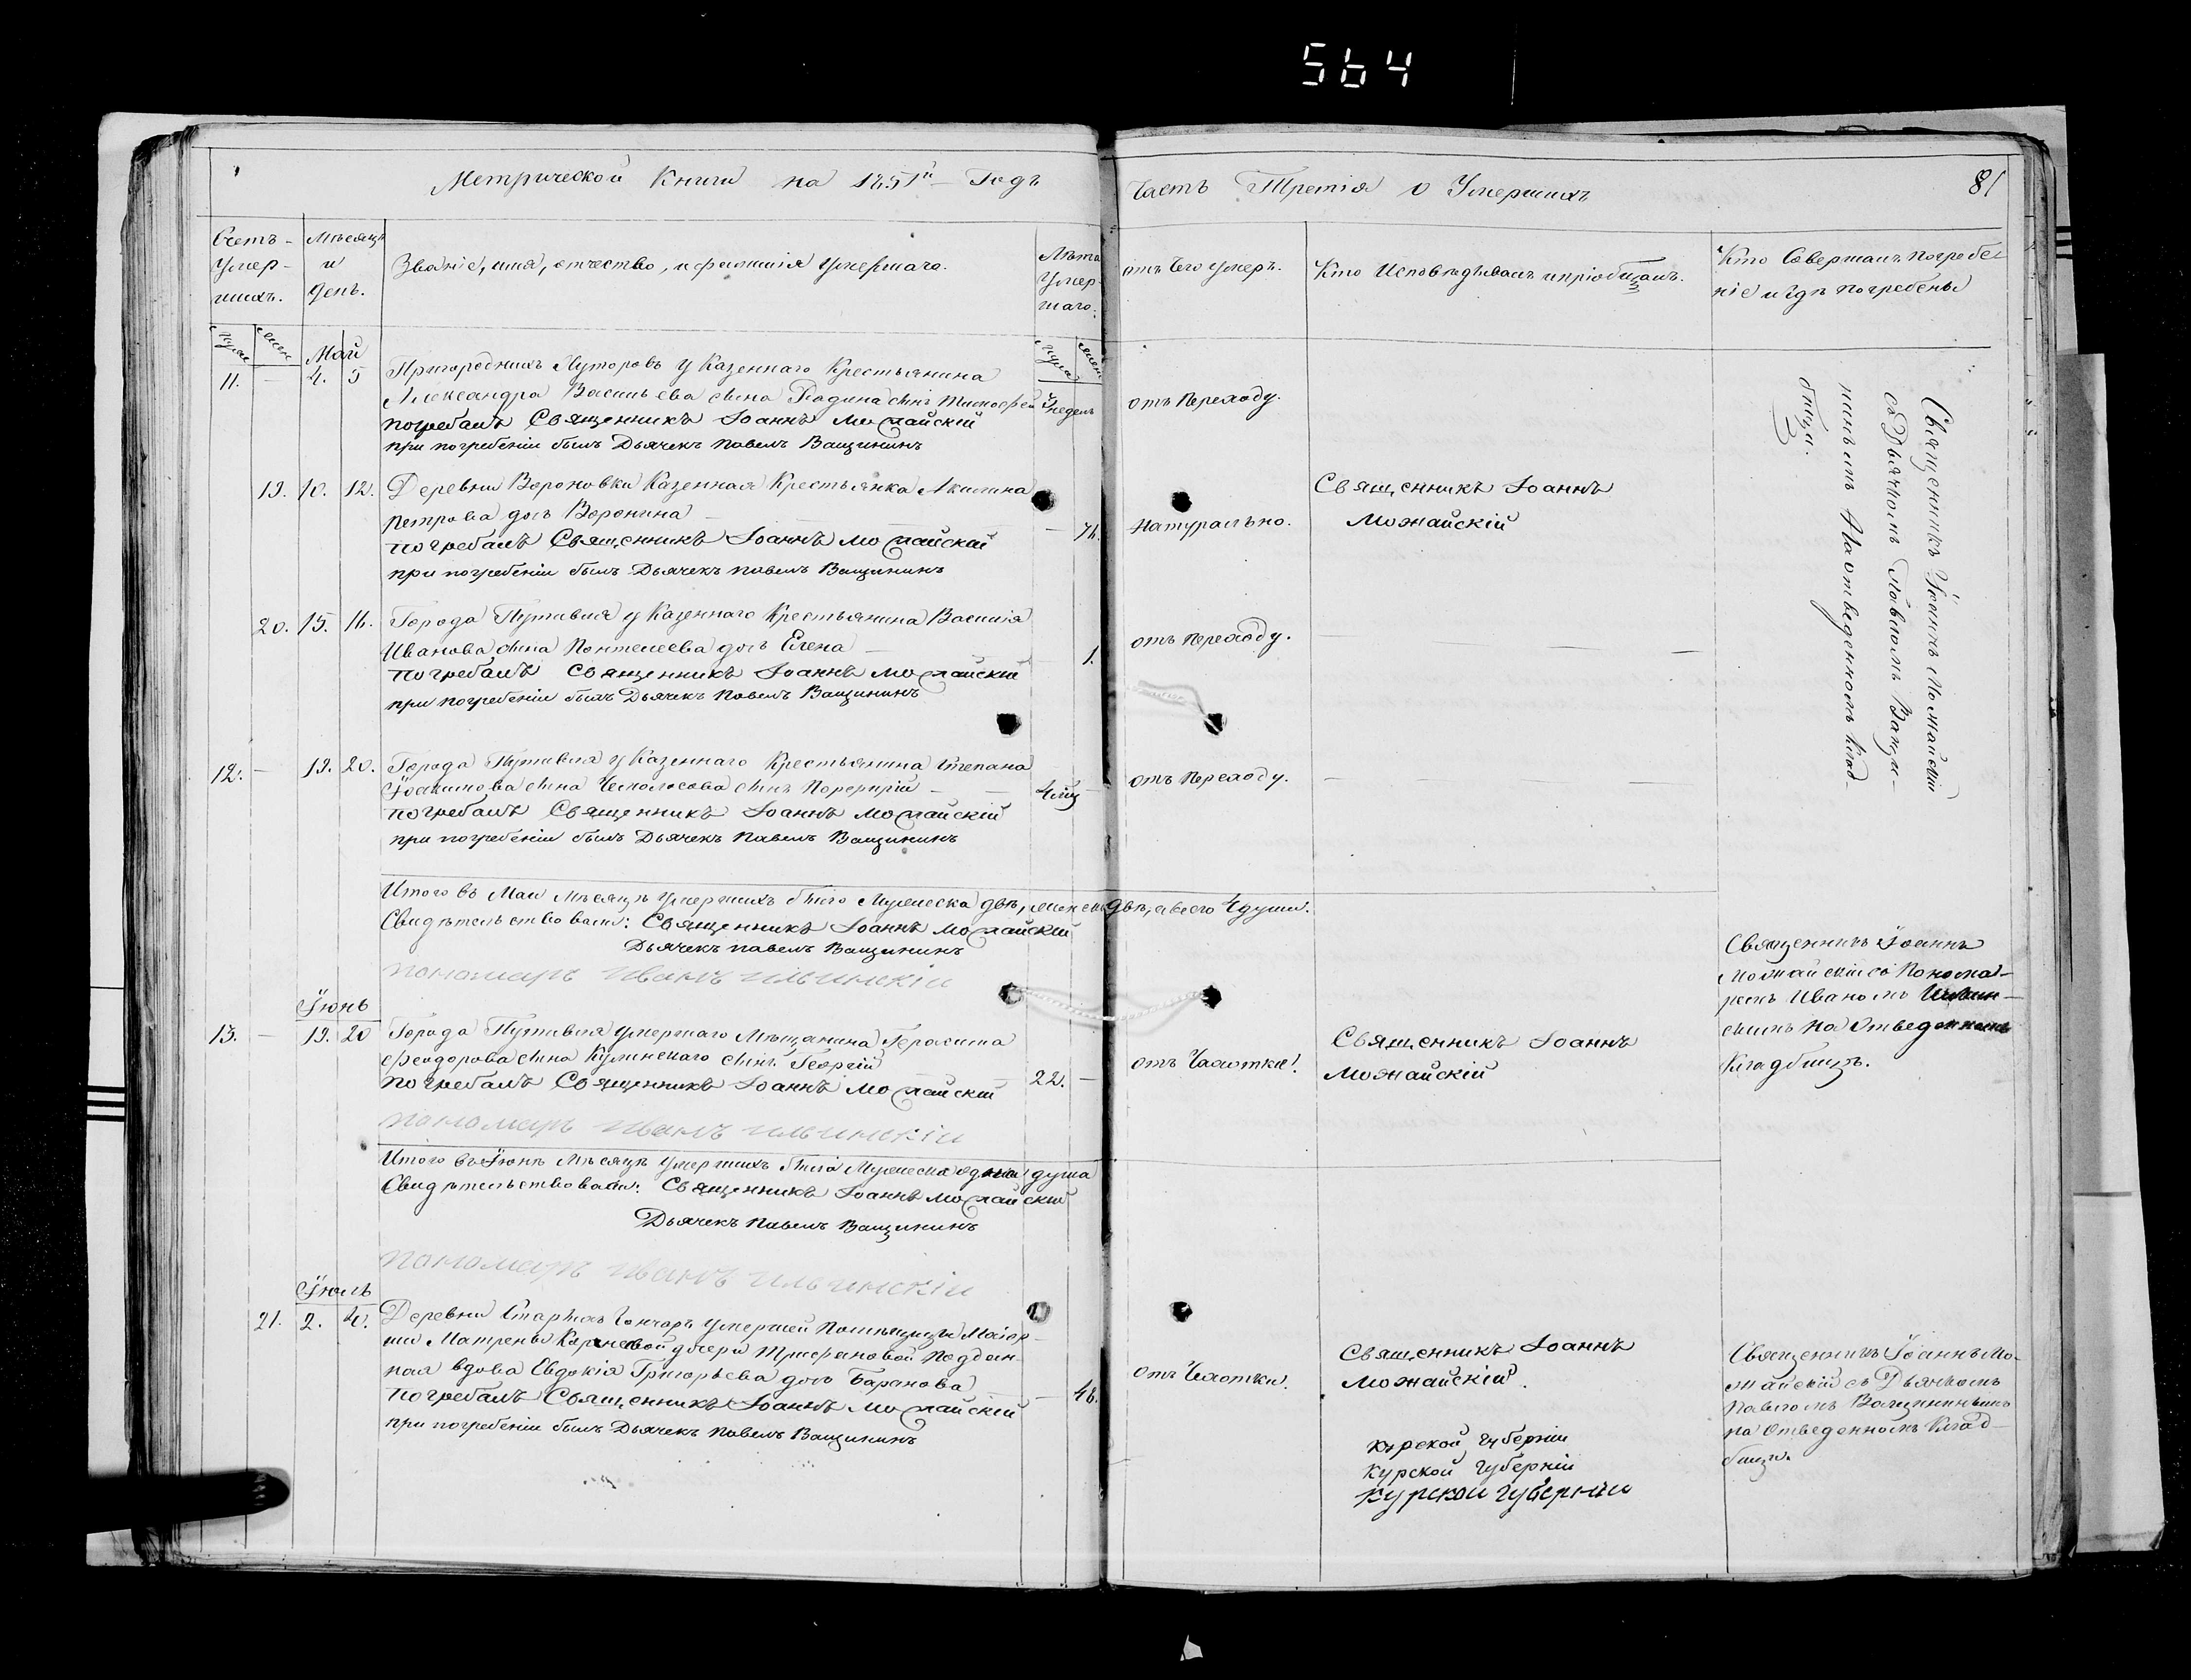 564
Метрической Книги на 1851й Годъ
Часть Третія о Умершихъ
81
Счетъ
Умер-
шихъ.
Мѣсяцъ
и
день.
Званіе, имя, отчество, и фамилія умершаго.
Лѣта
Умер-
шаго.
отъ чего умеръ.
Кто Исповѣдывалъ и пріобщалъ.
Кто Совершалъ погребе-
ніе и гдѣ погребены
Май
11. — 4. 5
Пригороднихъ Хуторовъ у Казеннаго Крестьянина
Александра Васильева сына Радина сынъ Тимофей
недель
отъ Переходу.
погребалъ Священникъ Іоаннъ Можайскій
при погребеніи былъ Дьячекъ Павелъ Ващининъ
19. 10. 12.
Деревни Вороновки Казенная Крестьянка Акилина
Петрова дочь Воронина
76.
Натурально.
Священникъ Іоаннъ
Можайскій
погребалъ Священникъ Іоаннъ Можайскій
при погребеніи былъ Дьячекъ Павелъ Ващининъ
20. 15. 16.
Города Путивля у Казеннаго Крестьянина Василія
Иванова сына Понтелеева дочь Елена
1.
отъ Переходу.
погребалъ Священникъ Іоаннъ Можайскій
при погребеніи былъ Дьячекъ Павелъ Ващининъ
12. — 19. 20.
Города Путивля у Казеннаго Крестьянина Степана
Іоакимова сына Чемолосова сынъ Порфирій
4 мц
отъ Переходу.
погребалъ Священникъ Іоаннъ Можайскій
при погребеніи былъ Дьячекъ Павелъ Ващининъ
Священникъ Іоаннъ Можайскій
съ Дьячкомъ Павломъ Ващи-
нинымъ На отведенномъ Клад-
бищи.
Итого въ Маи Мѣсяцѣ умершихъ было Мужеска двѣ, женска двѣ, а всего 4 души.
Свидѣтельствовали: Священникъ Іоаннъ Можайскій
Дьячекъ Павелъ Ващининъ
пономарь Иванъ Ильинскій
Іюнь
13. — 19. 20
Города Путивля умершаго Мѣщанина Герасима
Феодорова сына Кулинскаго сынъ Георгій
22.
отъ Чахотки.
Священникъ Іоаннъ
Можайскій
Священникъ Іоаннъ
Можайскій съ Понома-
ремъ Иваномъ Ильин-
скимъ на Отведенномъ
Кладбищѣ.
погребалъ Священникъ Іоаннъ Можайскій
пономарь Иванъ Ильинскій
Итого въ Іюнѣ Мѣсяцѣ умершихъ было Мужеска одна душа
Свидѣтельствовали: Священникъ Іоаннъ Можайскій
Дьячекъ Павелъ Ващининъ
пономарь Иванъ Ильинскій
Іюль
21. 2. 4.
Деревни Старыхъ Гончаръ умершей Помѣщицы Маіор-
ши Матрены Корневой дочери Трифановой Поддан-
ная вдова Евдокія Григорьева дочь Баранова
46.
отъ Чахотки.
Священникъ Іоаннъ
Можайскій
Священникъ Іоаннъ Мо-
жайскій съ Дьячкомъ
Павломъ Ващининымъ
на Отведенномъ Клад-
бищи.
погребалъ Священникъ Іоаннъ Можайскій
при погребеніи былъ Дьячекъ Павелъ Ващининъ
Курской Губерніи
Курской Губерніи
Курской Губерніи